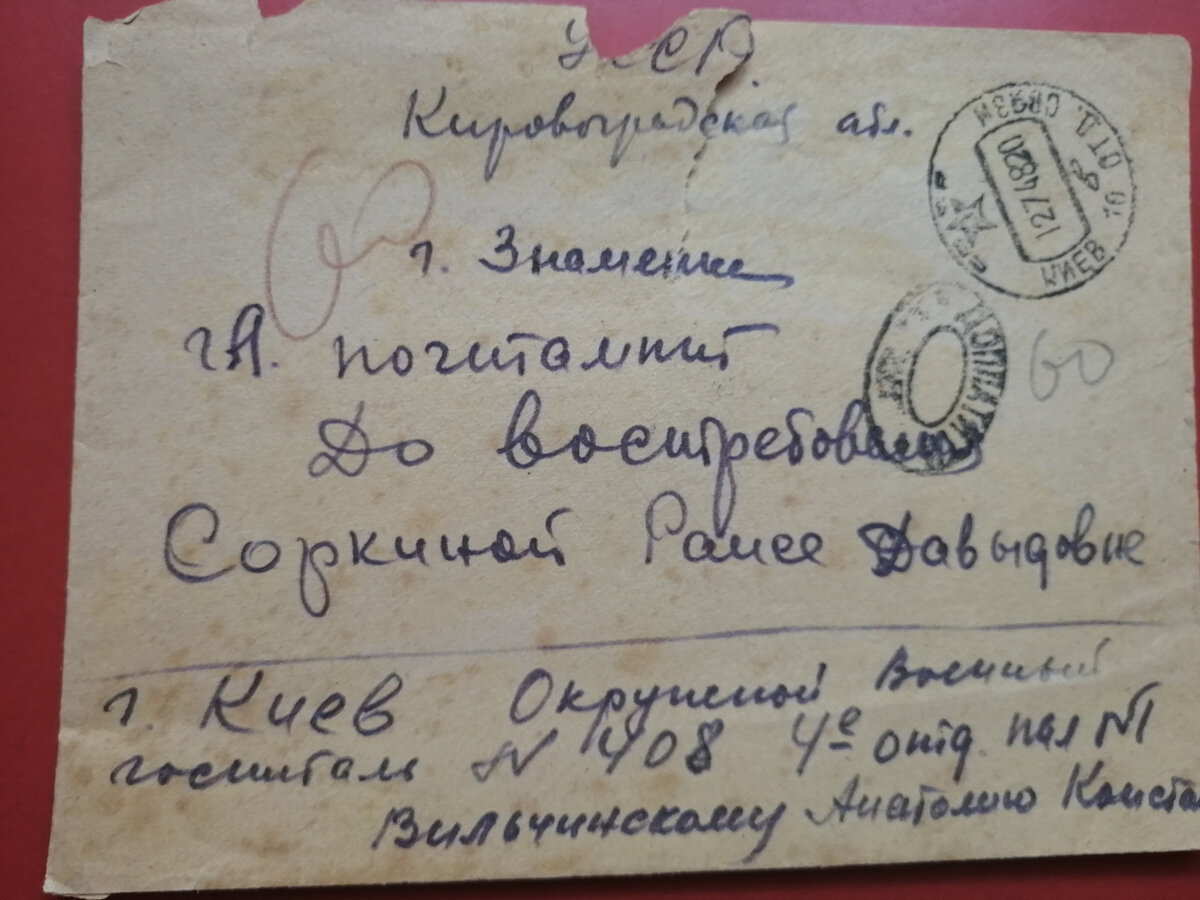 УССР
Кировоградская обл.
г. Знаменка
гл. почтамт
До востребования
Соркиной Раисе Давыдовне
г. Киев Окружной Военный
госпиталь N 408 4е отд. пал N1
Вильчинскому Анатолию Конста
КИЕВ 10 ОТД. СВЯЗИ
12 7 48 20
ДОПЛАТИТЬ
60